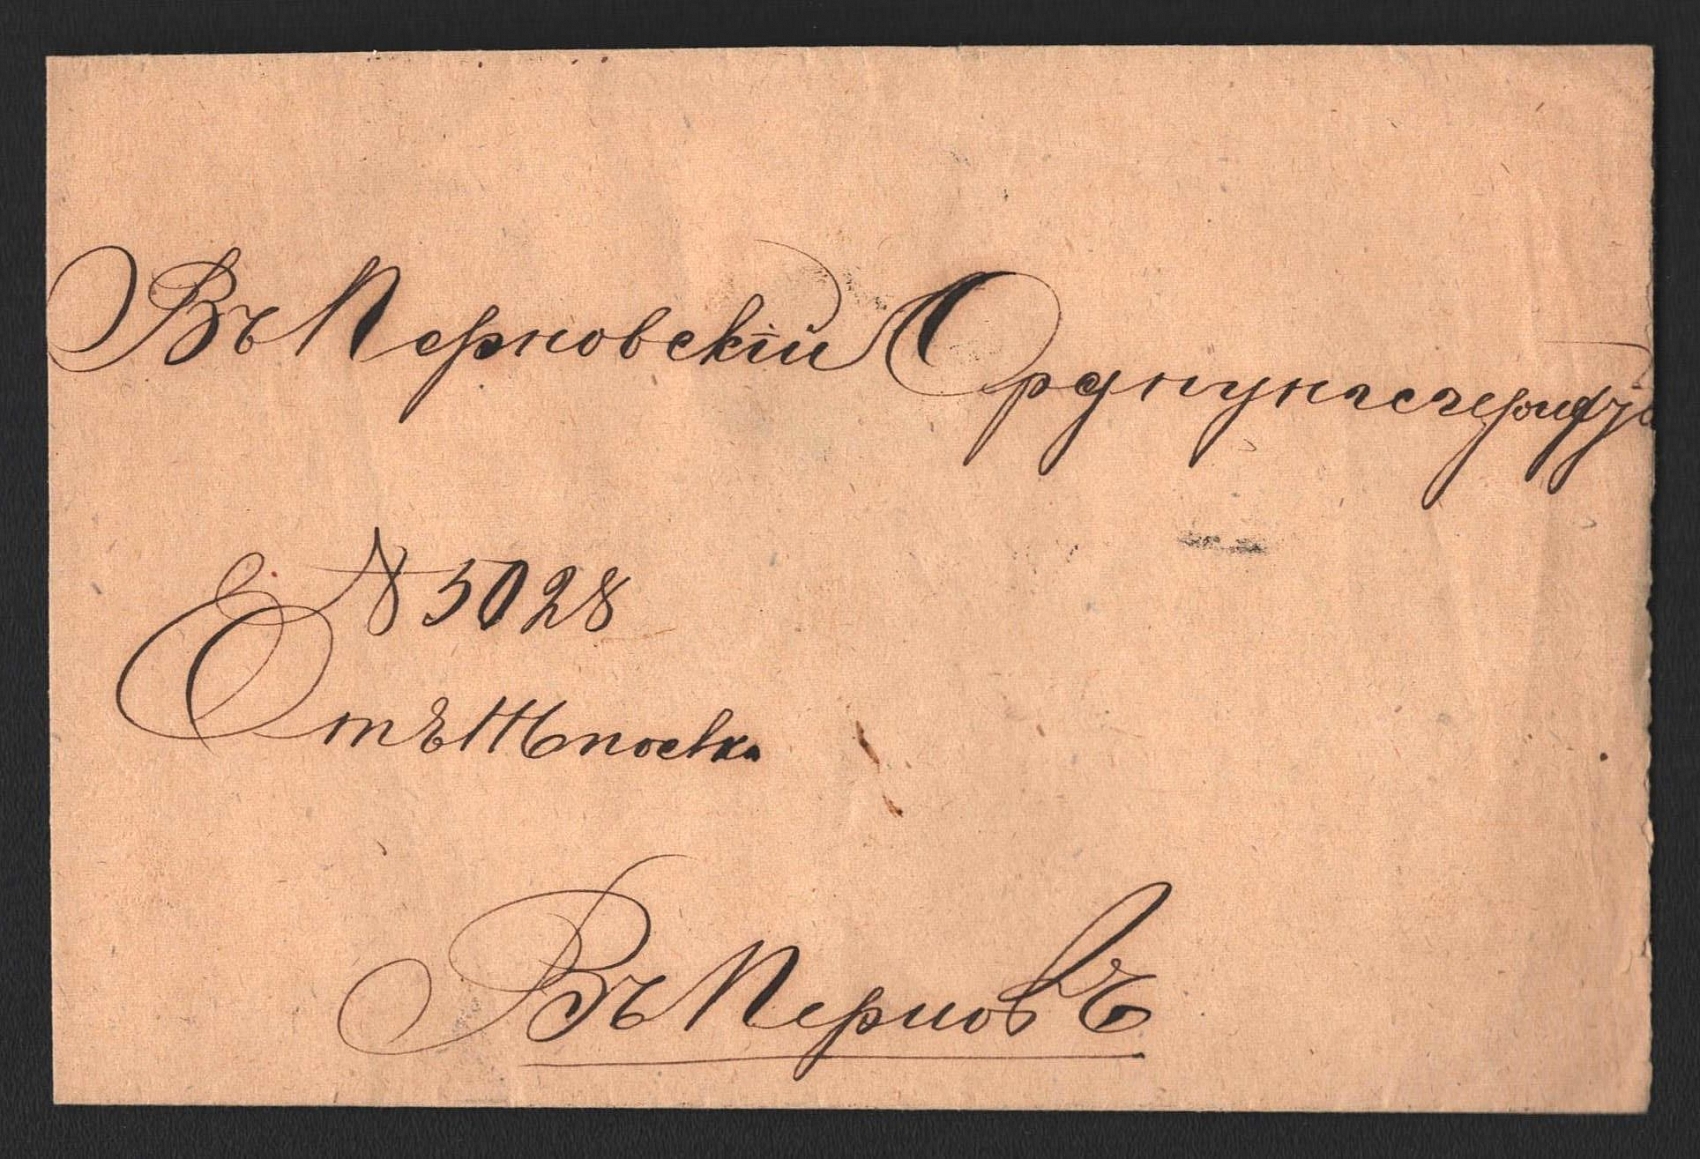 Въ Перновскій Орднунгсгерихтъ
№ 5028
Отъ
Въ Перновѣ